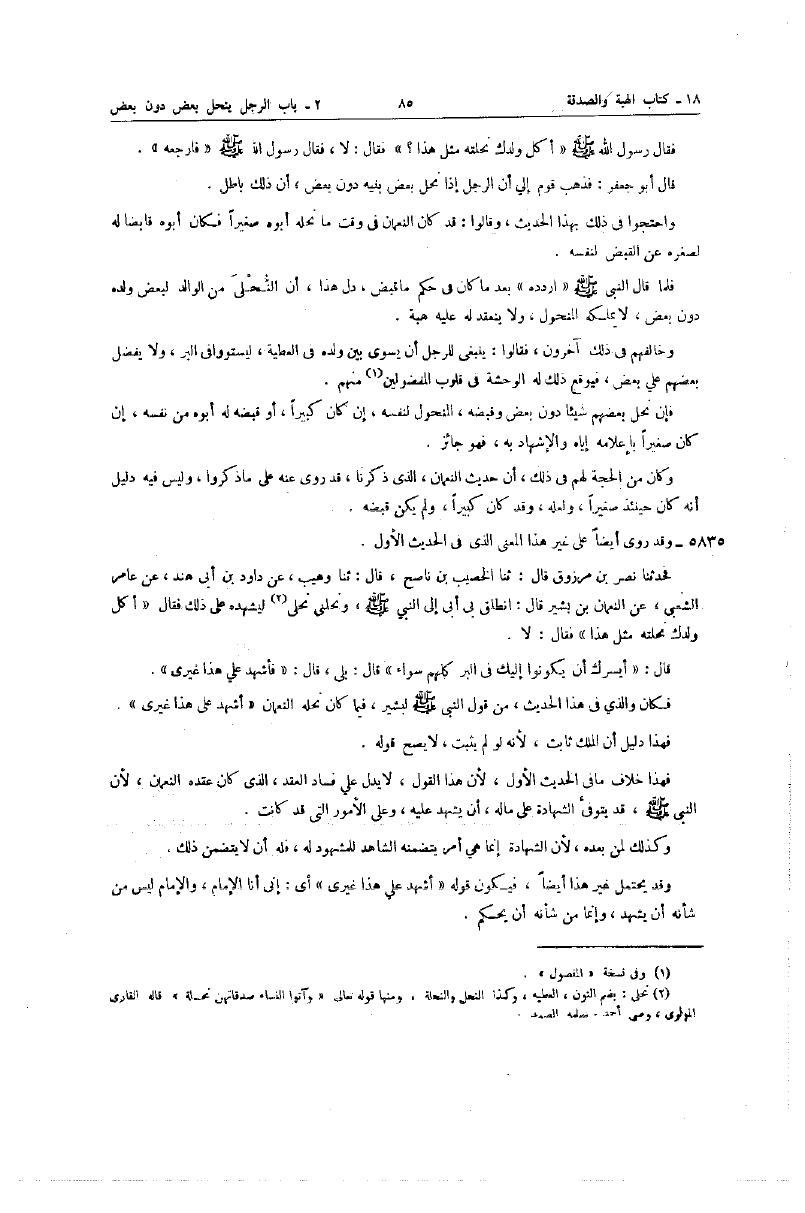 ١٨ ـ كتاب الهبة والصدقة ٨٥ ٢ ـ باب الرجل ينحل بعض دون بعض
فقال رسول الله ﷺ « أكل ولدك نحلته مثل هذا ؟ » فقال : لا ، فقال رسول الله ﷺ « فارجعه » .
قال أبو جعفر : فذهب قوم إلي أن الرجل إذا نحل بعض بنيه دون بعض ، أن ذلك باطل .
واحتجوا فى ذلك بهذا الحديث ، وقالوا : قد كان النعمان فى وقت ما نحله أبوه صغيراً فكان أبوه قابضا له
لصغره عن القبض لنفسه .
فلما قال النبي ﷺ « اردده » بعد ماكان فى حكم ماقبض ، دل هذا ، أن النُّحْلىَ من الوالد لبعض ولده
دون بعض ، لايملكه المنحول ، ولا ينعقد له عليه هبة .
وخالفهم فى ذلك آخرون ، فقالوا : ينبغى للرجل أن يسوى بين ولده فى العطية ، ليستووافى البر ، ولا يفضل
بعضهم علي بعض ، فيوقع ذلك له الوحشة فى قلوب المفضولين(١) منهم .
فإن نحل بعضهم شيئا دون بعض وقبضه ، المنحول لنفسه ، إن كان كبيراً ، أو قبضه له أبوه من نفسه ، إن
كان صغيراً بإعلامه إياه والإشهاد به ، فهو جائز .
وكان من الحجة لهم فى ذلك ، أن حديث النعمان ، الذى ذكرنا ، قد روى عنه على ماذكروا ، وليس فيه دليل
أنه كان حينئذ صغيراً ، ولعله ، وقد كان كبيراً ، ولم يكن قبضه .
٥٨٣٥ ـ وقد روى أيضاً على غير هذا المعنى الذى فى الحديث الأول .
فحدثنا نصر بن مرزوق قال : ثنا الخصيب بن ناصح ، قال : ثنا وهيب ، عن داود بن أبى هند ، عن عامر
الشعبي ، عن النعمان بن بشير قال : انطلق بى أبى إلى النبي ﷺ ، ونحلنى نحلى(٢) ليشهده على ذلك فقال « أكل
ولدك نحلته مثل هذا » فقال : لا .
قال : « أيسرك أن يكونوا إليك فى البر كلهم سواء » قال : بلى ، قال : « فأشهد علي هذا غيرى » .
فكان والذي فى هذا الحديث ، من قول النبى ﷺ لبشير ، فيما كان نحله النعمان « أشهد على هذا غيرى » .
فهذا دليل أن الملك ثابت ، لأنه لو لم يثبت ، لايصح قوله .
فهذا خلاف مافى الحديث الأول ، لأن هذا القول ، لايدل علي فساد العقد ، الذى كان عقده النعمان ، لأن
النبى ﷺ ، قد يتوقىٰ الشهادة على ماله ، أن يشهد عليه ، وعلى الأمور التى قد كانت .
وكذلك لمن بعده ، لأن الشهادة إنما هي أمر يتضمنه الشاهد للمشهود له ، فله أن لايتضمن ذلك .
وقد يحتمل غير هذا أيضاً ، فيكون قوله « أشهد علي هذا غيرى » أى : إنى أنا الإمام ، والإمام ليس من
شأنه أن يشهد ، وإنما من شأنه أن يحكم .
(١) وفى نسخة « المفصول » .
(٢) نحلى : بضم النون ، العطيه ، وكذا النحل والنحلة ، ومنها قوله تعالى « وآتوا النساء صدقاتهن نحلة » قاله القارى
المولوى ، وصى أحمد ، سلمه الصمد .